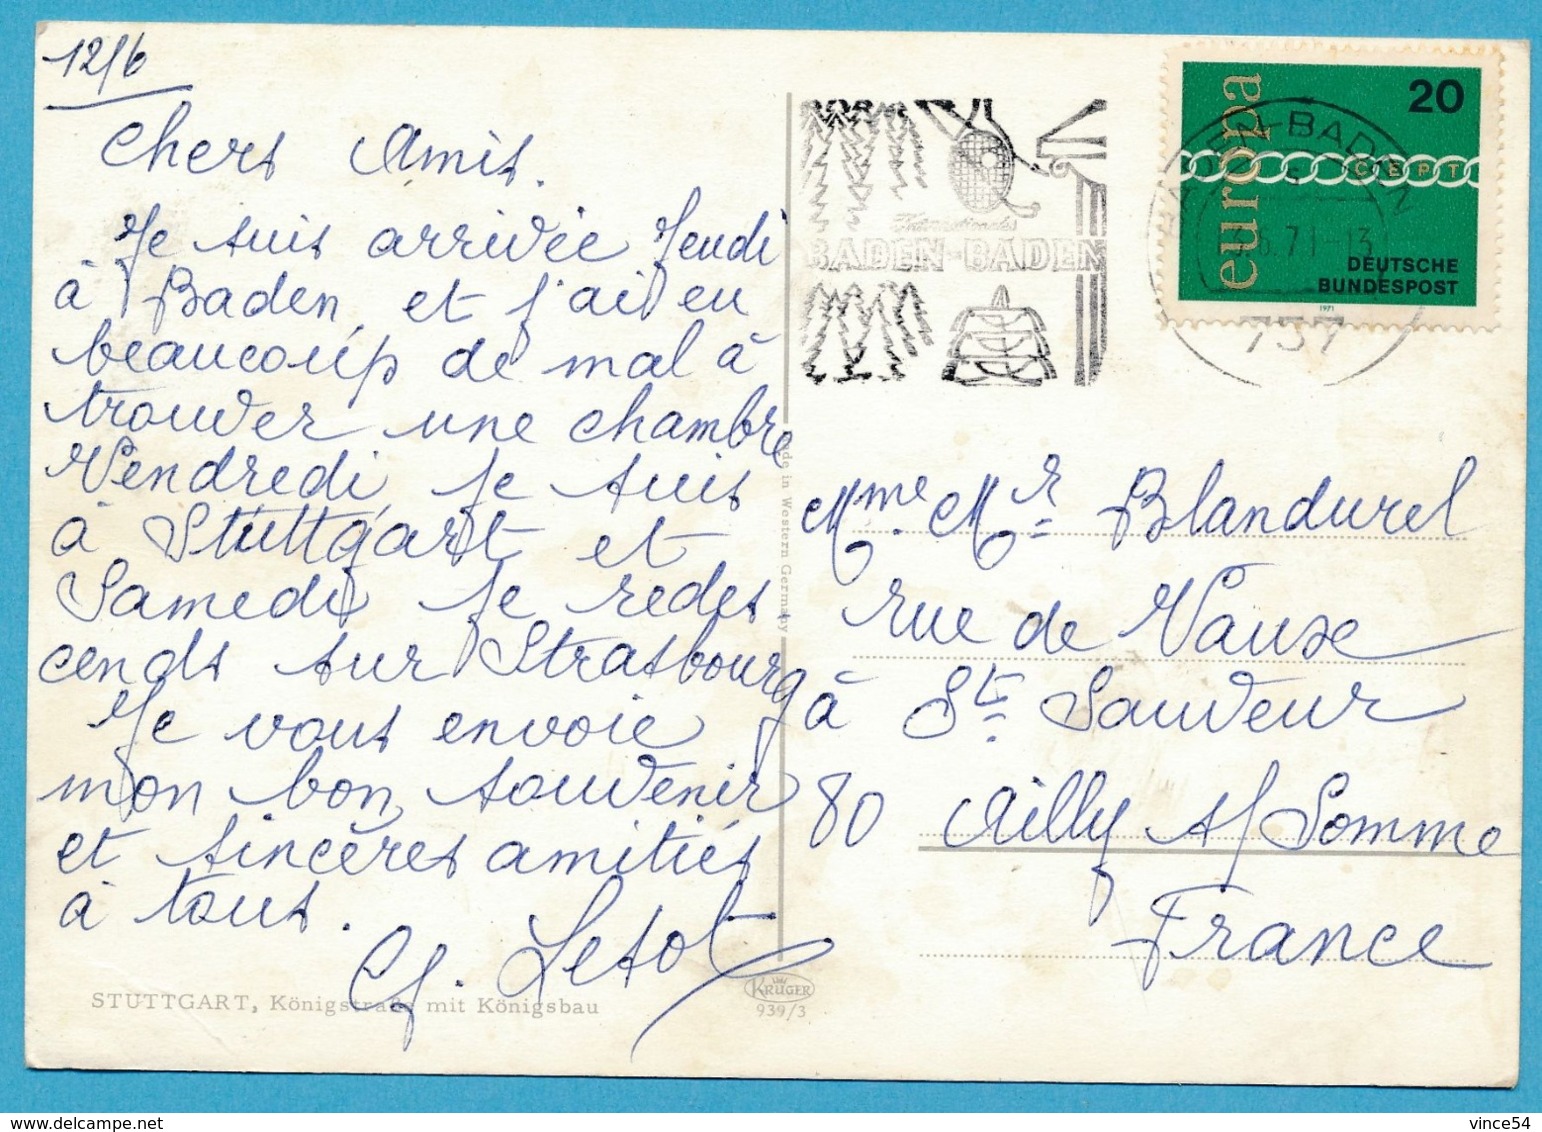 12/6
Chers Amis.
Je suis arrivée Jeudi
à Baden, et j'ai eu
beaucoup de mal à
trouver une chambre
Vendredi je suis
à Stuttgart et
Samedi je redes
cends sur Strasbourg
Je vous envoie
mon bon souvenir
et sincères amitiés
à tous.
STUTTGART, Königstraße mit Königsbau
KRÜGER
939/3
Made in Western Germany
Internationales
BADEN-BADEN
europa
20
CEPT
DEUTSCHE
BUNDESPOST
1971
BADEN-BADEN
.6.71-13
757
Mme. Mr Blandurel
rue de Vaux
à St. Sauveur
80 Ailly s/Somme
France
delcampe.net
vince54